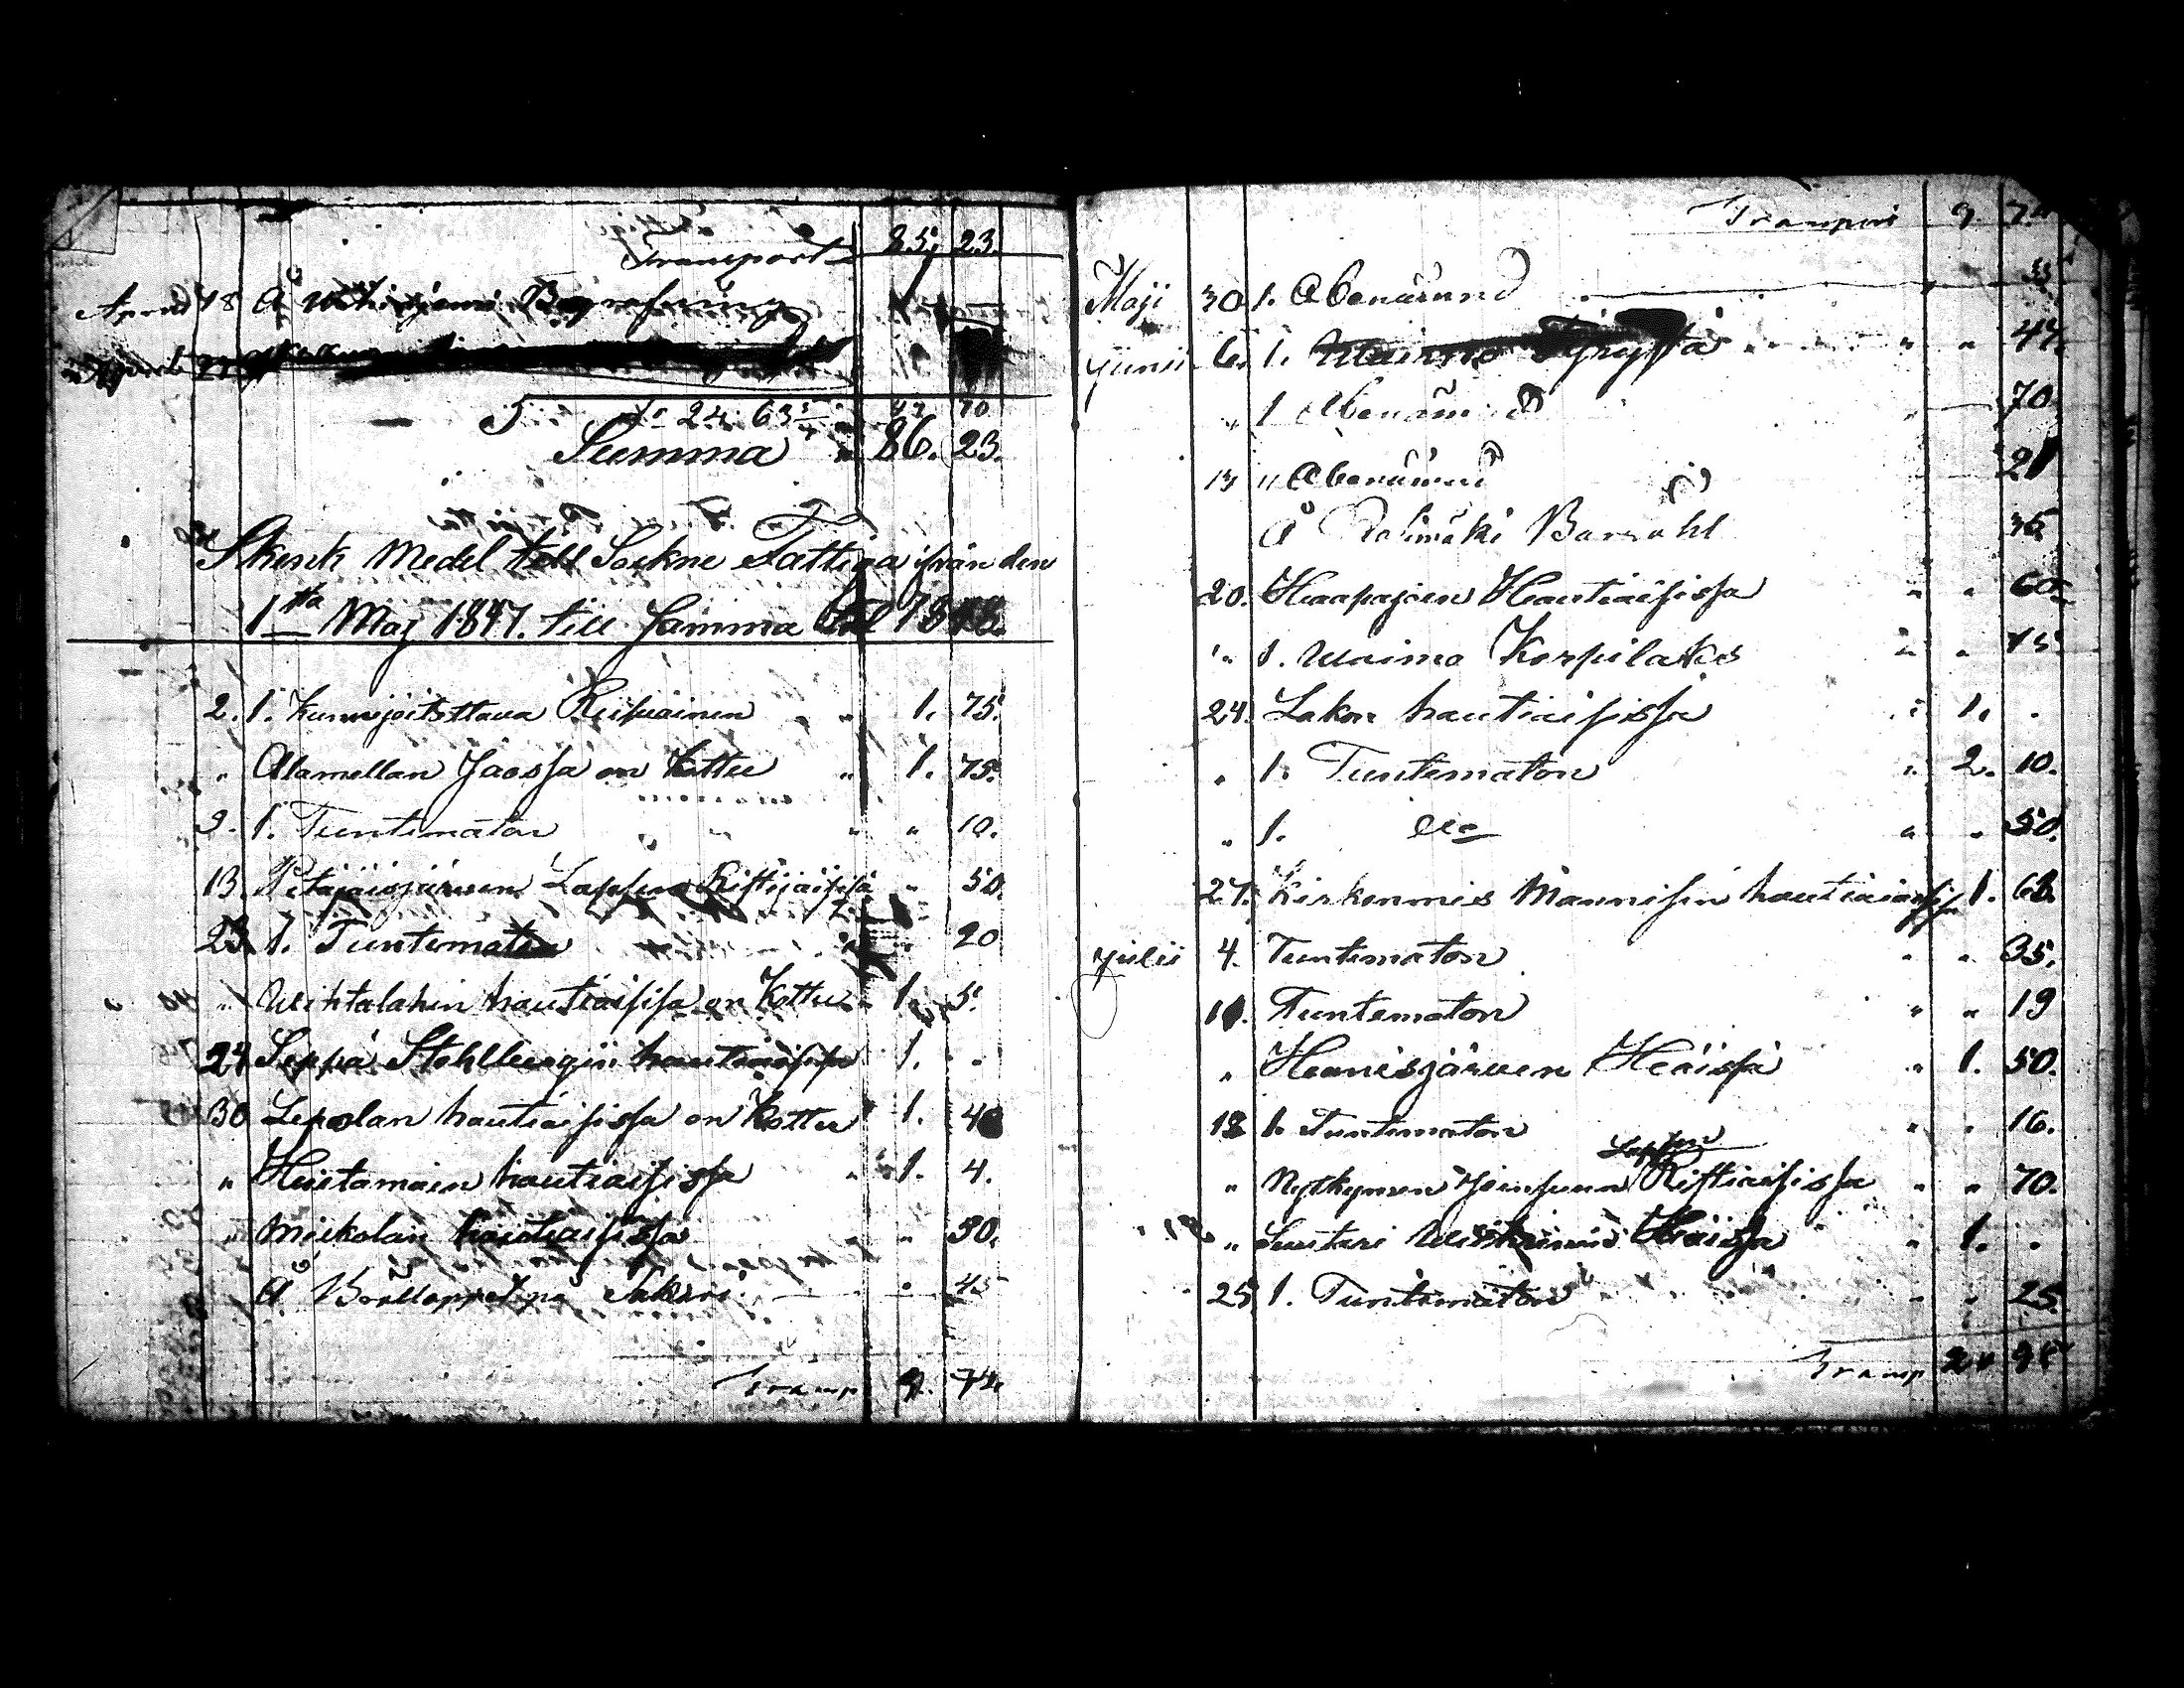 Transport 85, 23.
April 18 Å Begrafning
24. 63 47 70
Summa " 86. 23.
Skenk Medel till Sockne Fattiga ifrån den
1sta Maj 1847. till Samma 1848.
2. 1. Kunnijoitettava " 1. 75.
" Alamellan Jaossa on Kottu " 1. 75.
9. 1. Tuntematon " " 10.
13. Petäjäisjärwen Lapsen Ristijäisissä " 50.
23. 1. Tuntematon " 20
" Wihtalahin hautiaisissa on Kottu 1. 5.
24 Seppä Stohlbergin hautiaisissa 1. .
30 Lepolan hautiaisissa on Kottu 1. 40
" Hiistamäin hautiaisissa " 1. 4.
" Mickolan hautiaisissa " " 50.
Å Brölloppet på " 45
Transp 9. 74.
Transport 9. 74
Maji 30 1. Obenämnd 33
Junii 6. 1. Waimo " " 44.
" 1 Obenämnd " 70
13 " Obenämnd 21
Å Barnöhl 36
20. Haapajoen Hautiaisissa " " 60.
" 1. Waimo Korpilaks " " 15
24. Lakon hautiaisissa " 1. .
" 1. Tuntematon " 2. 10.
" 1. dito " " 50.
27. Kirkonmies Mannisen hautiaisissa 1. 60.
Julii 4. Tuntematon " " 35.
11. Tuntematon " " 19
" Heinisjärwen Häissä " 1. 50.
18 1. Tuntematon " " 16.
Lapsen
" Nytkymen Ristiäisissa " " 70.
18 " Suutari Häissa " 1. .
25 1. Tuntematon " " 25.
Transp